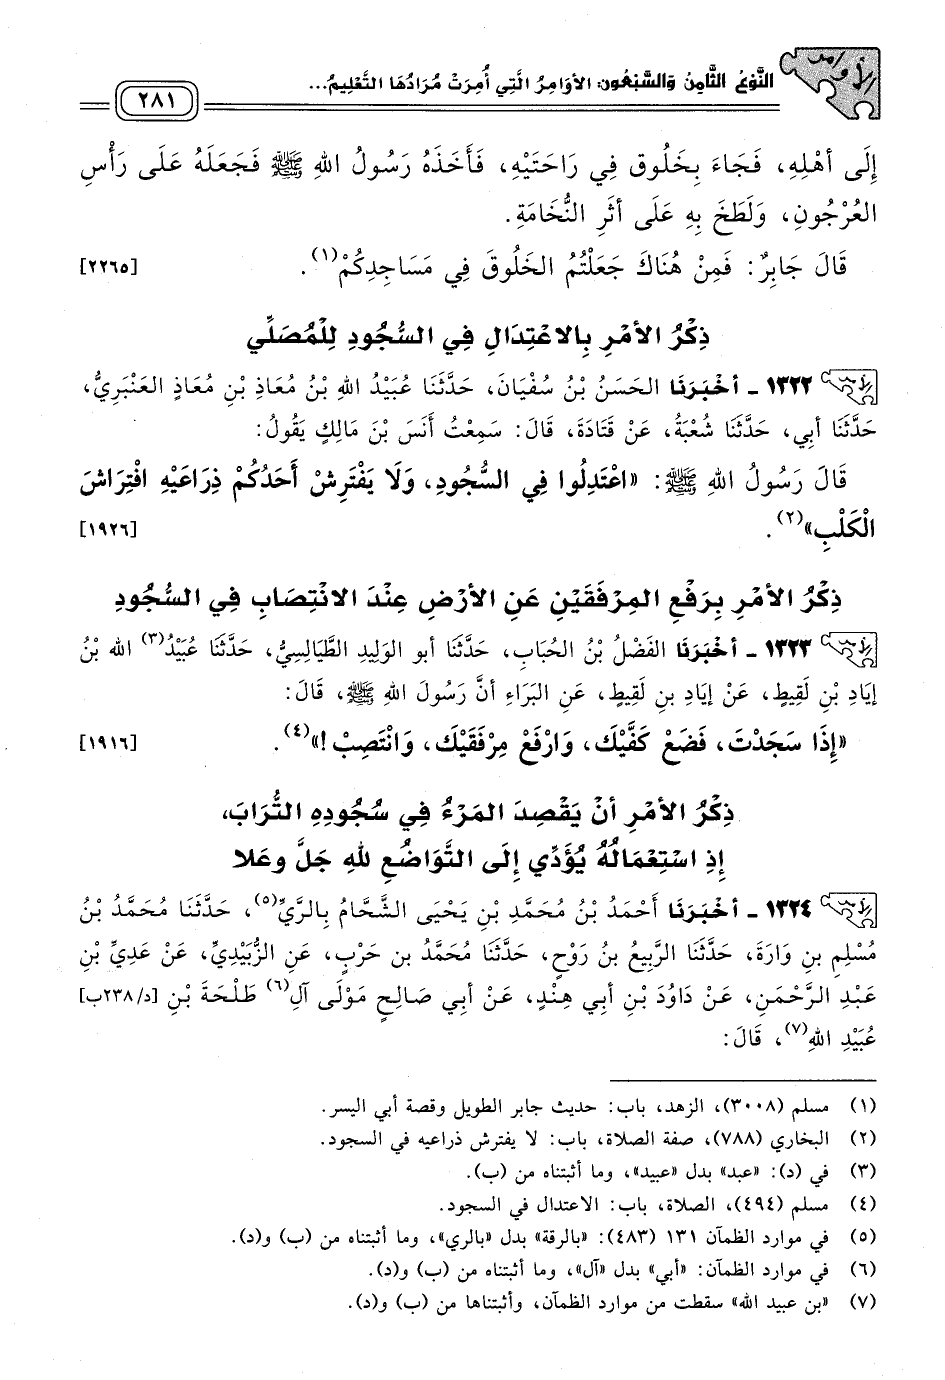 الأوامر
النَّوْعُ الثَّامِنُ وَالسَّبْعُونَ: الأَوَامِرُ الَّتِي أُمِرَتْ مُرَادُهَا التَّعْلِيمُ...
٢٨١
إِلَى أَهْلِهِ، فَجَاءَ بِخَلُوقٍ فِي رَاحَتَيْهِ، فَأَخَذَهُ رَسُولُ اللهِ ﷺ فَجَعَلَهُ عَلَى رَأْسِ
العُرْجُونِ، وَلَطَخَ بِهِ عَلَى أَثَرِ النُّخَامَةِ.
قَالَ جَابِرٌ: فَمِنْ هُنَاكَ جَعَلْتُمُ الخَلُوقَ فِي مَسَاجِدِكُمْ(١). [٢٢٦٥]
ذِكْرُ الأَمْرِ بِالاعْتِدَالِ فِي السُّجُودِ لِلْمُصَلِّي
١٣٢٢ - أَخْبَرَنَا الحَسَنُ بْنُ سُفْيَانَ، حَدَّثَنَا عُبَيْدُ اللهِ بْنُ مُعَاذِ بْنِ مُعَاذٍ العَنْبَرِيُّ،
حَدَّثَنَا أَبِي، حَدَّثَنَا شُعْبَةُ، عَنْ قَتَادَةَ، قَالَ: سَمِعْتُ أَنَسَ بْنَ مَالِكٍ يَقُولُ:
قَالَ رَسُولُ اللهِ ﷺ: «اعْتَدِلُوا فِي السُّجُودِ، وَلَا يَفْتَرِشْ أَحَدُكُمْ ذِرَاعَيْهِ افْتِرَاشَ
الْكَلْبِ»(٢). [١٩٢٦]
ذِكْرُ الأَمْرِ بِرَفْعِ المِرْفَقَيْنِ عَنِ الأَرْضِ عِنْدَ الانْتِصَابِ فِي السُّجُودِ
١٣٢٣ - أَخْبَرَنَا الفَضْلُ بْنُ الحُبَابِ، حَدَّثَنَا أبو الوَلِيدِ الطَّيَالِسِيُّ، حَدَّثَنَا عُبَيْدُ(٣) الله بْنُ
إِيَادِ بْنِ لَقِيطٍ، عَنْ إِيَادِ بنِ لَقِيطٍ، عَنِ البَرَاءِ أنَّ رَسُولَ اللهِ ﷺ، قَالَ:
«إِذَا سَجَدْتَ، فَضَعْ كَفَّيْكَ، وَارْفَعْ مِرْفَقَيْكَ، وَانْتَصِبْ!»(٤). [١٩١٦]
ذِكْرُ الأَمْرِ أَنْ يَقْصِدَ المَرْءُ فِي سُجُودِهِ التُّرَابَ،
إِذِ اسْتِعْمَالُهُ يُؤَدِّي إِلَى التَّوَاضُعِ لِلهِ جَلَّ وعَلا
١٣٢٤ - أَخْبَرَنَا أَحْمَدُ بْنُ مُحَمَّدِ بْنِ يَحْيَى الشَّحَّامُ بِالرَّيِّ(٥)، حَدَّثَنَا مُحَمَّدُ بْنُ
مُسْلِمِ بنِ وَارَةَ، حَدَّثَنَا الرَّبِيعُ بنُ رَوْحٍ، حَدَّثَنَا مُحَمَّدُ بن حَرْبٍ، عَنِ الزُّبَيْدِيِّ، عَنْ عَدِيِّ بْنِ
عَبْدِ الرَّحْمَنِ، عَنْ دَاوُدَ بْنِ أَبِي هِنْدٍ، عَنْ أَبِي صَالِحٍ مَوْلَى آلِ(٦) طَلْحَةَ بْنِ [د/٢٣٨ب]
عُبَيْدِ اللهِ(٧)، قَالَ:
(١) مسلم (٣٠٠٨)، الزهد، باب: حديث جابر الطويل وقصة أبي اليسر.
(٢) البخاري (٧٨٨)، صفة الصلاة، باب: لا يفترش ذراعيه في السجود.
(٣) في (د): «عبد» بدل «عبيد»، وما أثبتناه من (ب).
(٤) مسلم (٤٩٤)، الصلاة، باب: الاعتدال في السجود.
(٥) في موارد الظمآن ١٣١ (٤٨٣): «بالرقة» بدل «بالري»، وما أثبتناه من (ب) و(د).
(٦) في موارد الظمآن: «أبي» بدل «آل»، وما أثبتناه من (ب) و(د).
(٧) «بن عبيد الله» سقطت من موارد الظمآن، وأثبتناها من (ب) و(د).